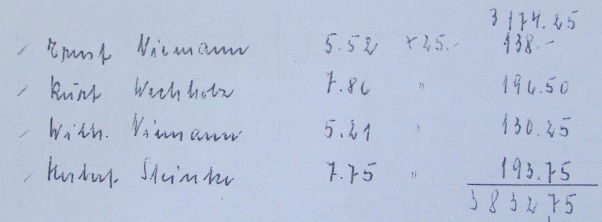 3174.25
Ernst Niemann 5.52 x 25.- 138.-
Kurt Wachholz 7.86 " 196.50
Wilh. Niemann 5.21 " 130.25
Herbert Steinke 7.75 " 193.75
383275